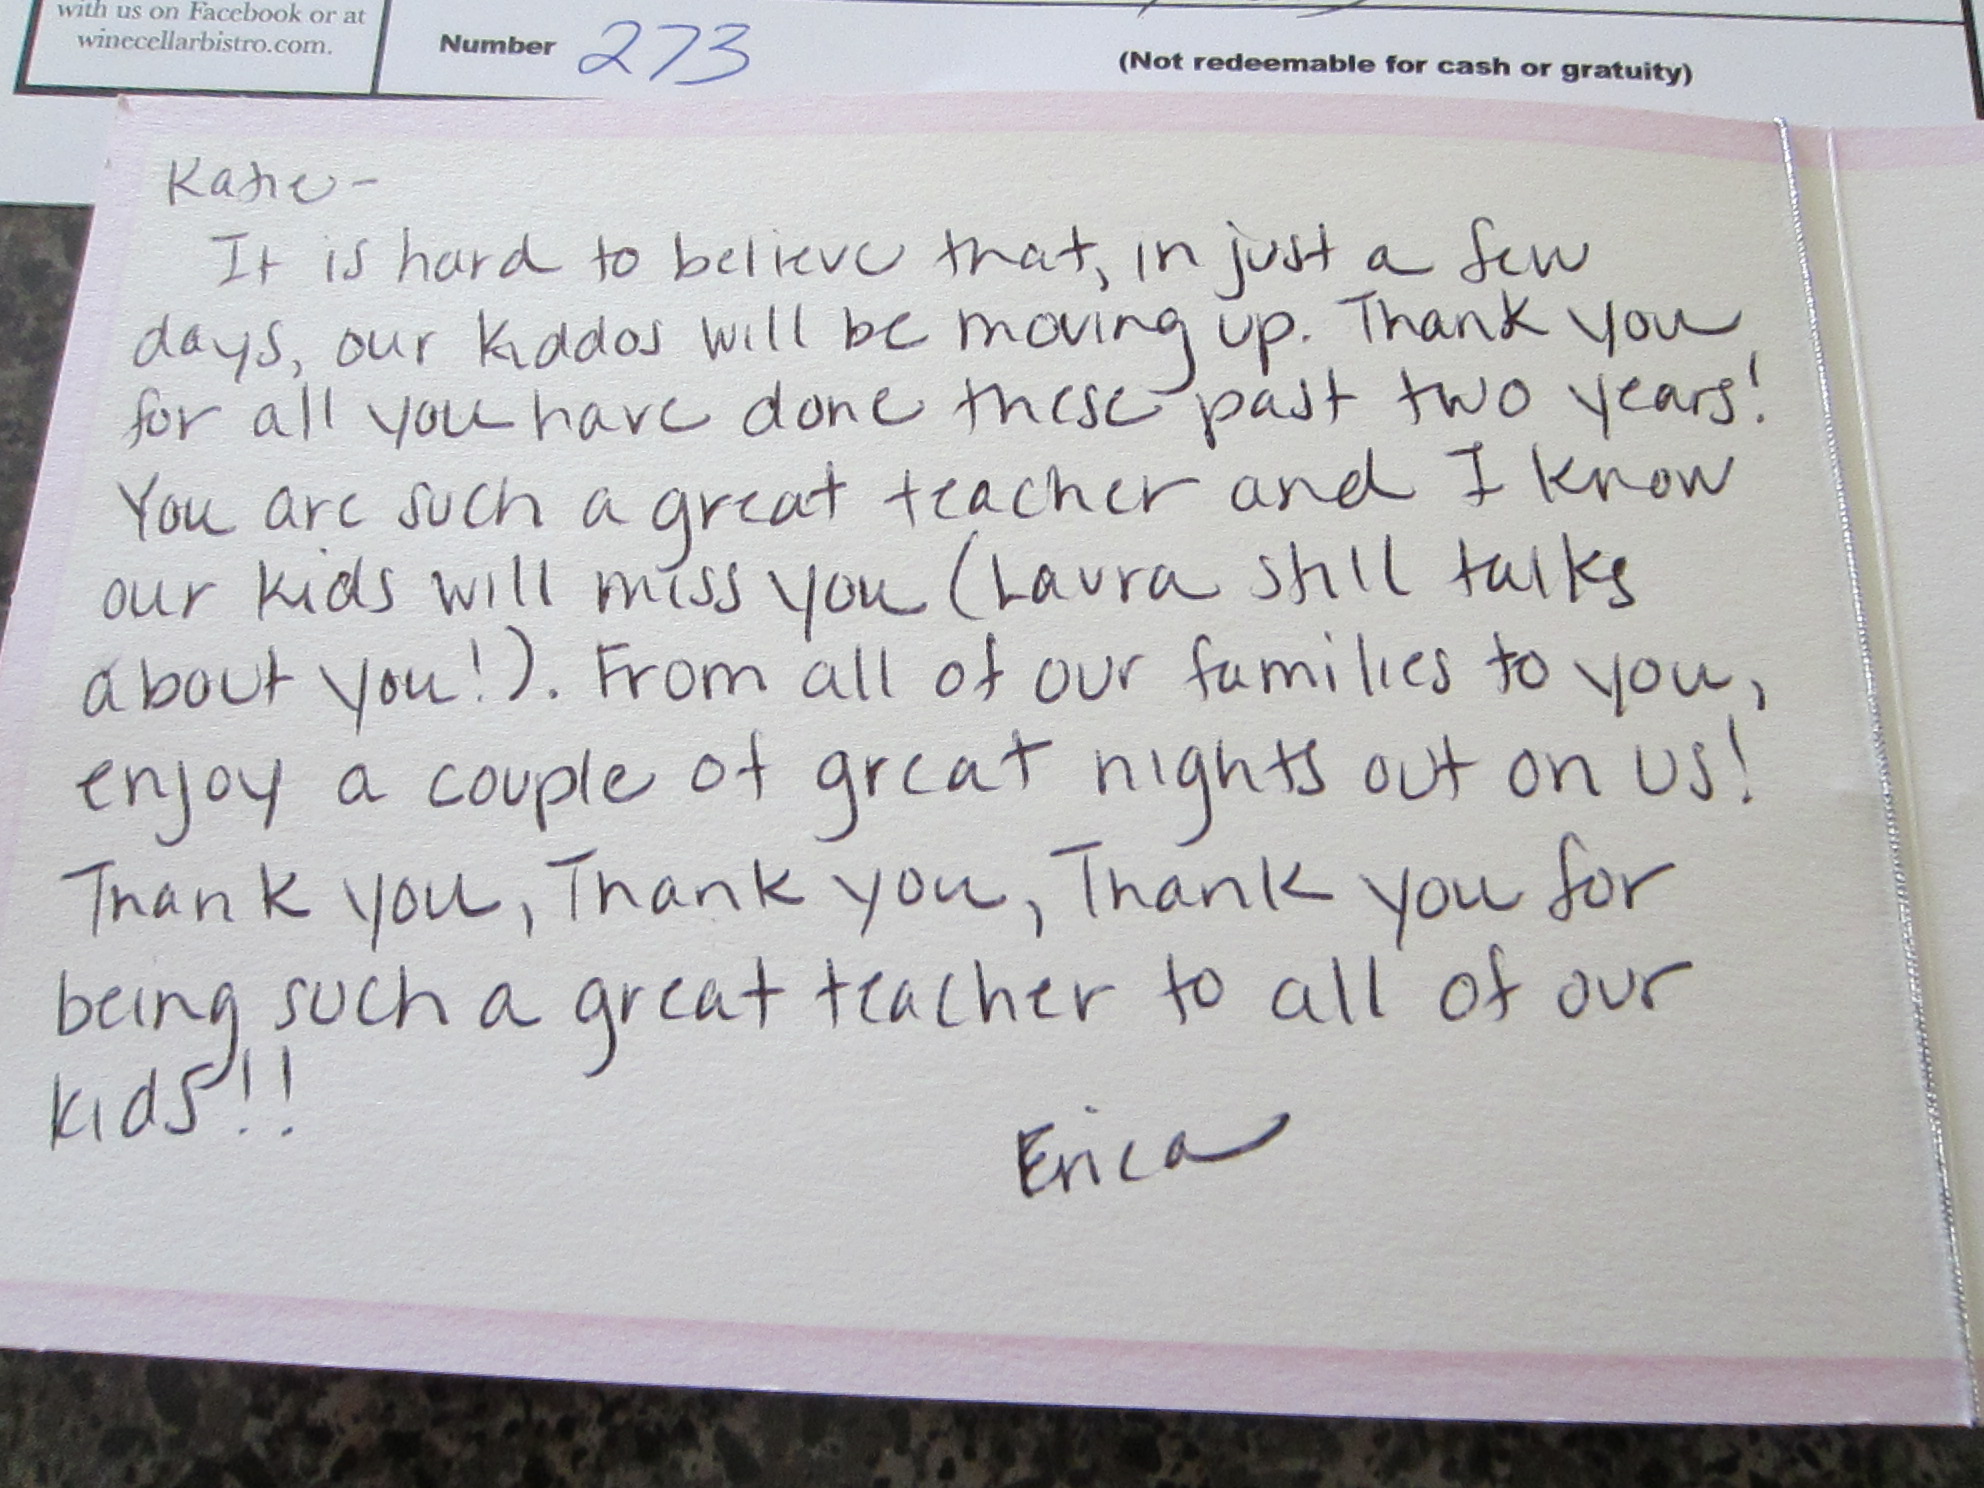 with us on Facebook or at
winecellarbistro.com.
Number 273
(Not redeemable for cash or gratuity)
Katie-
It is hard to believe that, in just a few
days, our kiddos will be moving up. Thank you
for all you have done these past two years!
You are such a great teacher and I know
our kids will miss you (Laura still talks
about you!). From all of our families to you,
enjoy a couple of great nights out on us!
Thank you, Thank you, Thank you for
being such a great teacher to all of our
kids!!
Erica